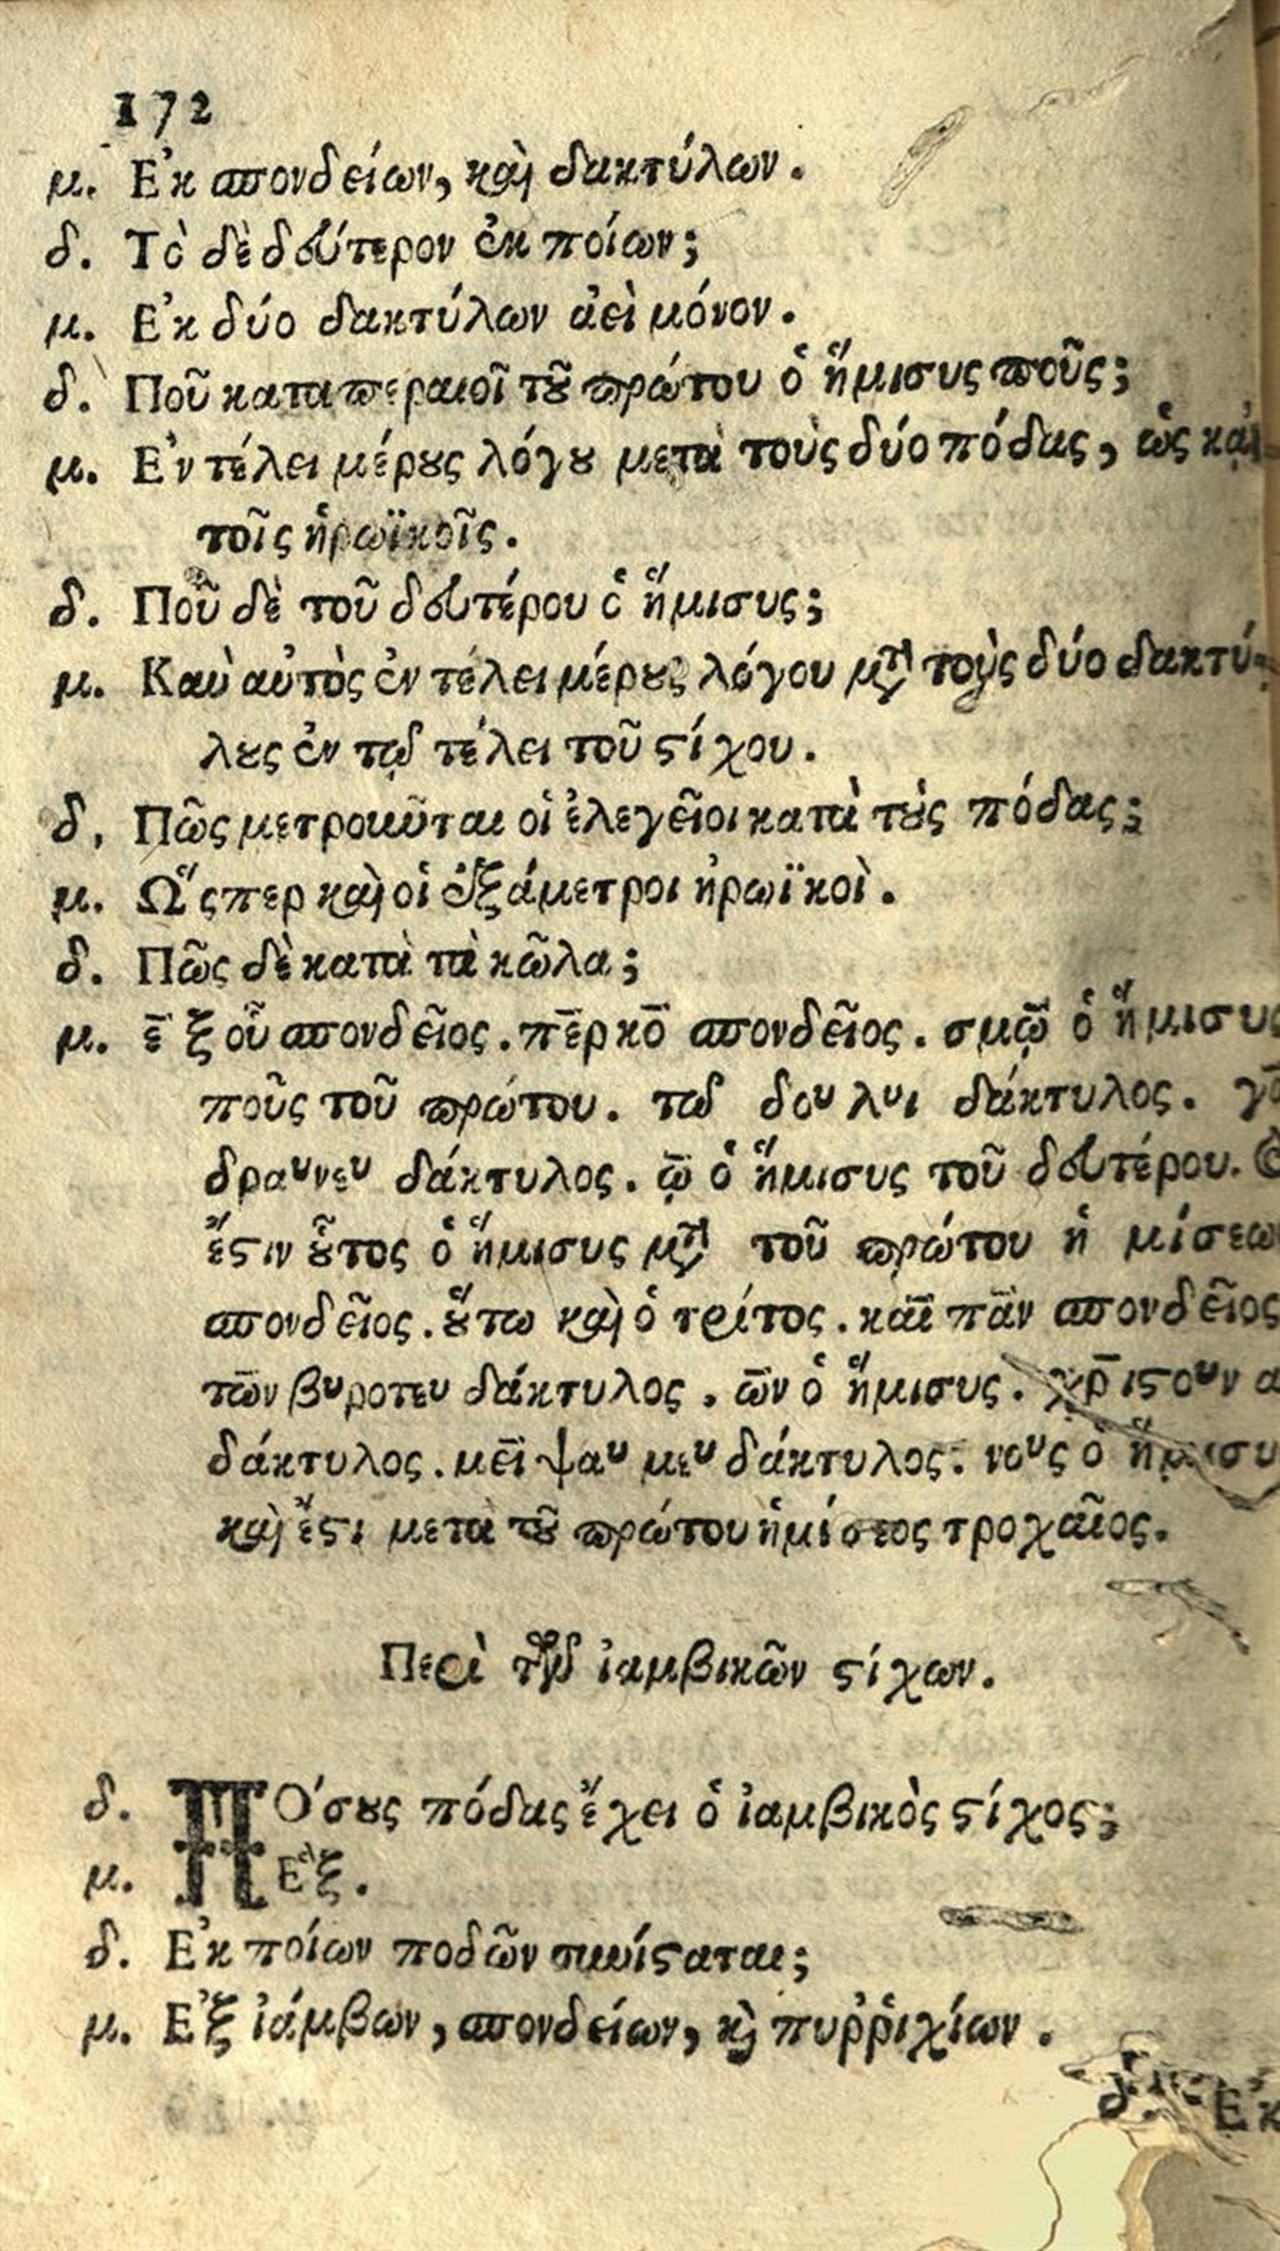 172
μ. Ἐκ σπονδείων, καὶ δακτύλων.
δ. Τὸ δὲ δεύτερον ἐκ ποίων;
μ. Ἐκ δύο δακτύλων ἀεὶ μόνον.
δ. Ποῦ καταπεραιοῖ τοῦ πρώτου ὁ ἥμισυς ποῦς;
μ. Ἐν τέλει μέρους λόγου μετὰ τοὺς δύο πόδας, ὡς καὶ
τοῖς ἡρωϊκοῖς.
δ. Ποῦ δὲ τοῦ δευτέρου ὁ ἥμισυς;
μ. Καὶ αὐτὸς ἐν τέλει μέρους λόγου μετὰ τοὺς δύο δακτύ-
λους ἐν τῷ τέλει τοῦ στίχου.
δ, Πῶς μετροῦνται οἱ ἐλεγεῖοι κατὰ τοὺς πόδας;
μ. Ὥσπερ καὶ οἱ ἑξάμετροι ἡρωϊκοὶ.
δ. Πῶς δὲ κατὰ τὰ κῶλα;
μ. ε̄ ξ οὗ σπονδεῖος. πε̄ρ κο̄ σπονδεῖος. σμῳ̄ ὁ ἥμισυς
ποῦς τοῦ πρώτου. τω δου λυι δάκτυλος.
δραυνευ δάκτυλος. ῳ̄ ὁ ἥμισυς τοῦ δευτέρου.
ἔστιν οὗτος ὁ ἥμισυς μετὰ τοῦ πρώτου ἡμίσεω
σπονδεῖος. οὕτω καὶ ὁ τρίτος. καῑ πᾱν σπονδεῖος
τω̄ν βυροτευ δάκτυλος. ω̄ν ὁ ἥμισυς. χρ̄ιστουν α
δάκτυλος. μεῑ ψαυ μευ δάκτυλος. νους ὁ ἥμισυ
καὶ ἔστι μετὰ τοῦ πρώτου ἡμίσεος τροχαῖος.
Περὶ τῶν ἰαμβικῶν στίχων.
δ. ΠΌσους πόδας ἔχει ὁ ἰαμβικὸς στίχος;
μ. Ἓξ.
δ. Ἐκ ποίων ποδῶν συνίσταται;
μ. Ἐξ ἰάμβων, σπονδείων, καὶ πυῤῥιχίων.
δ. Ἐκ